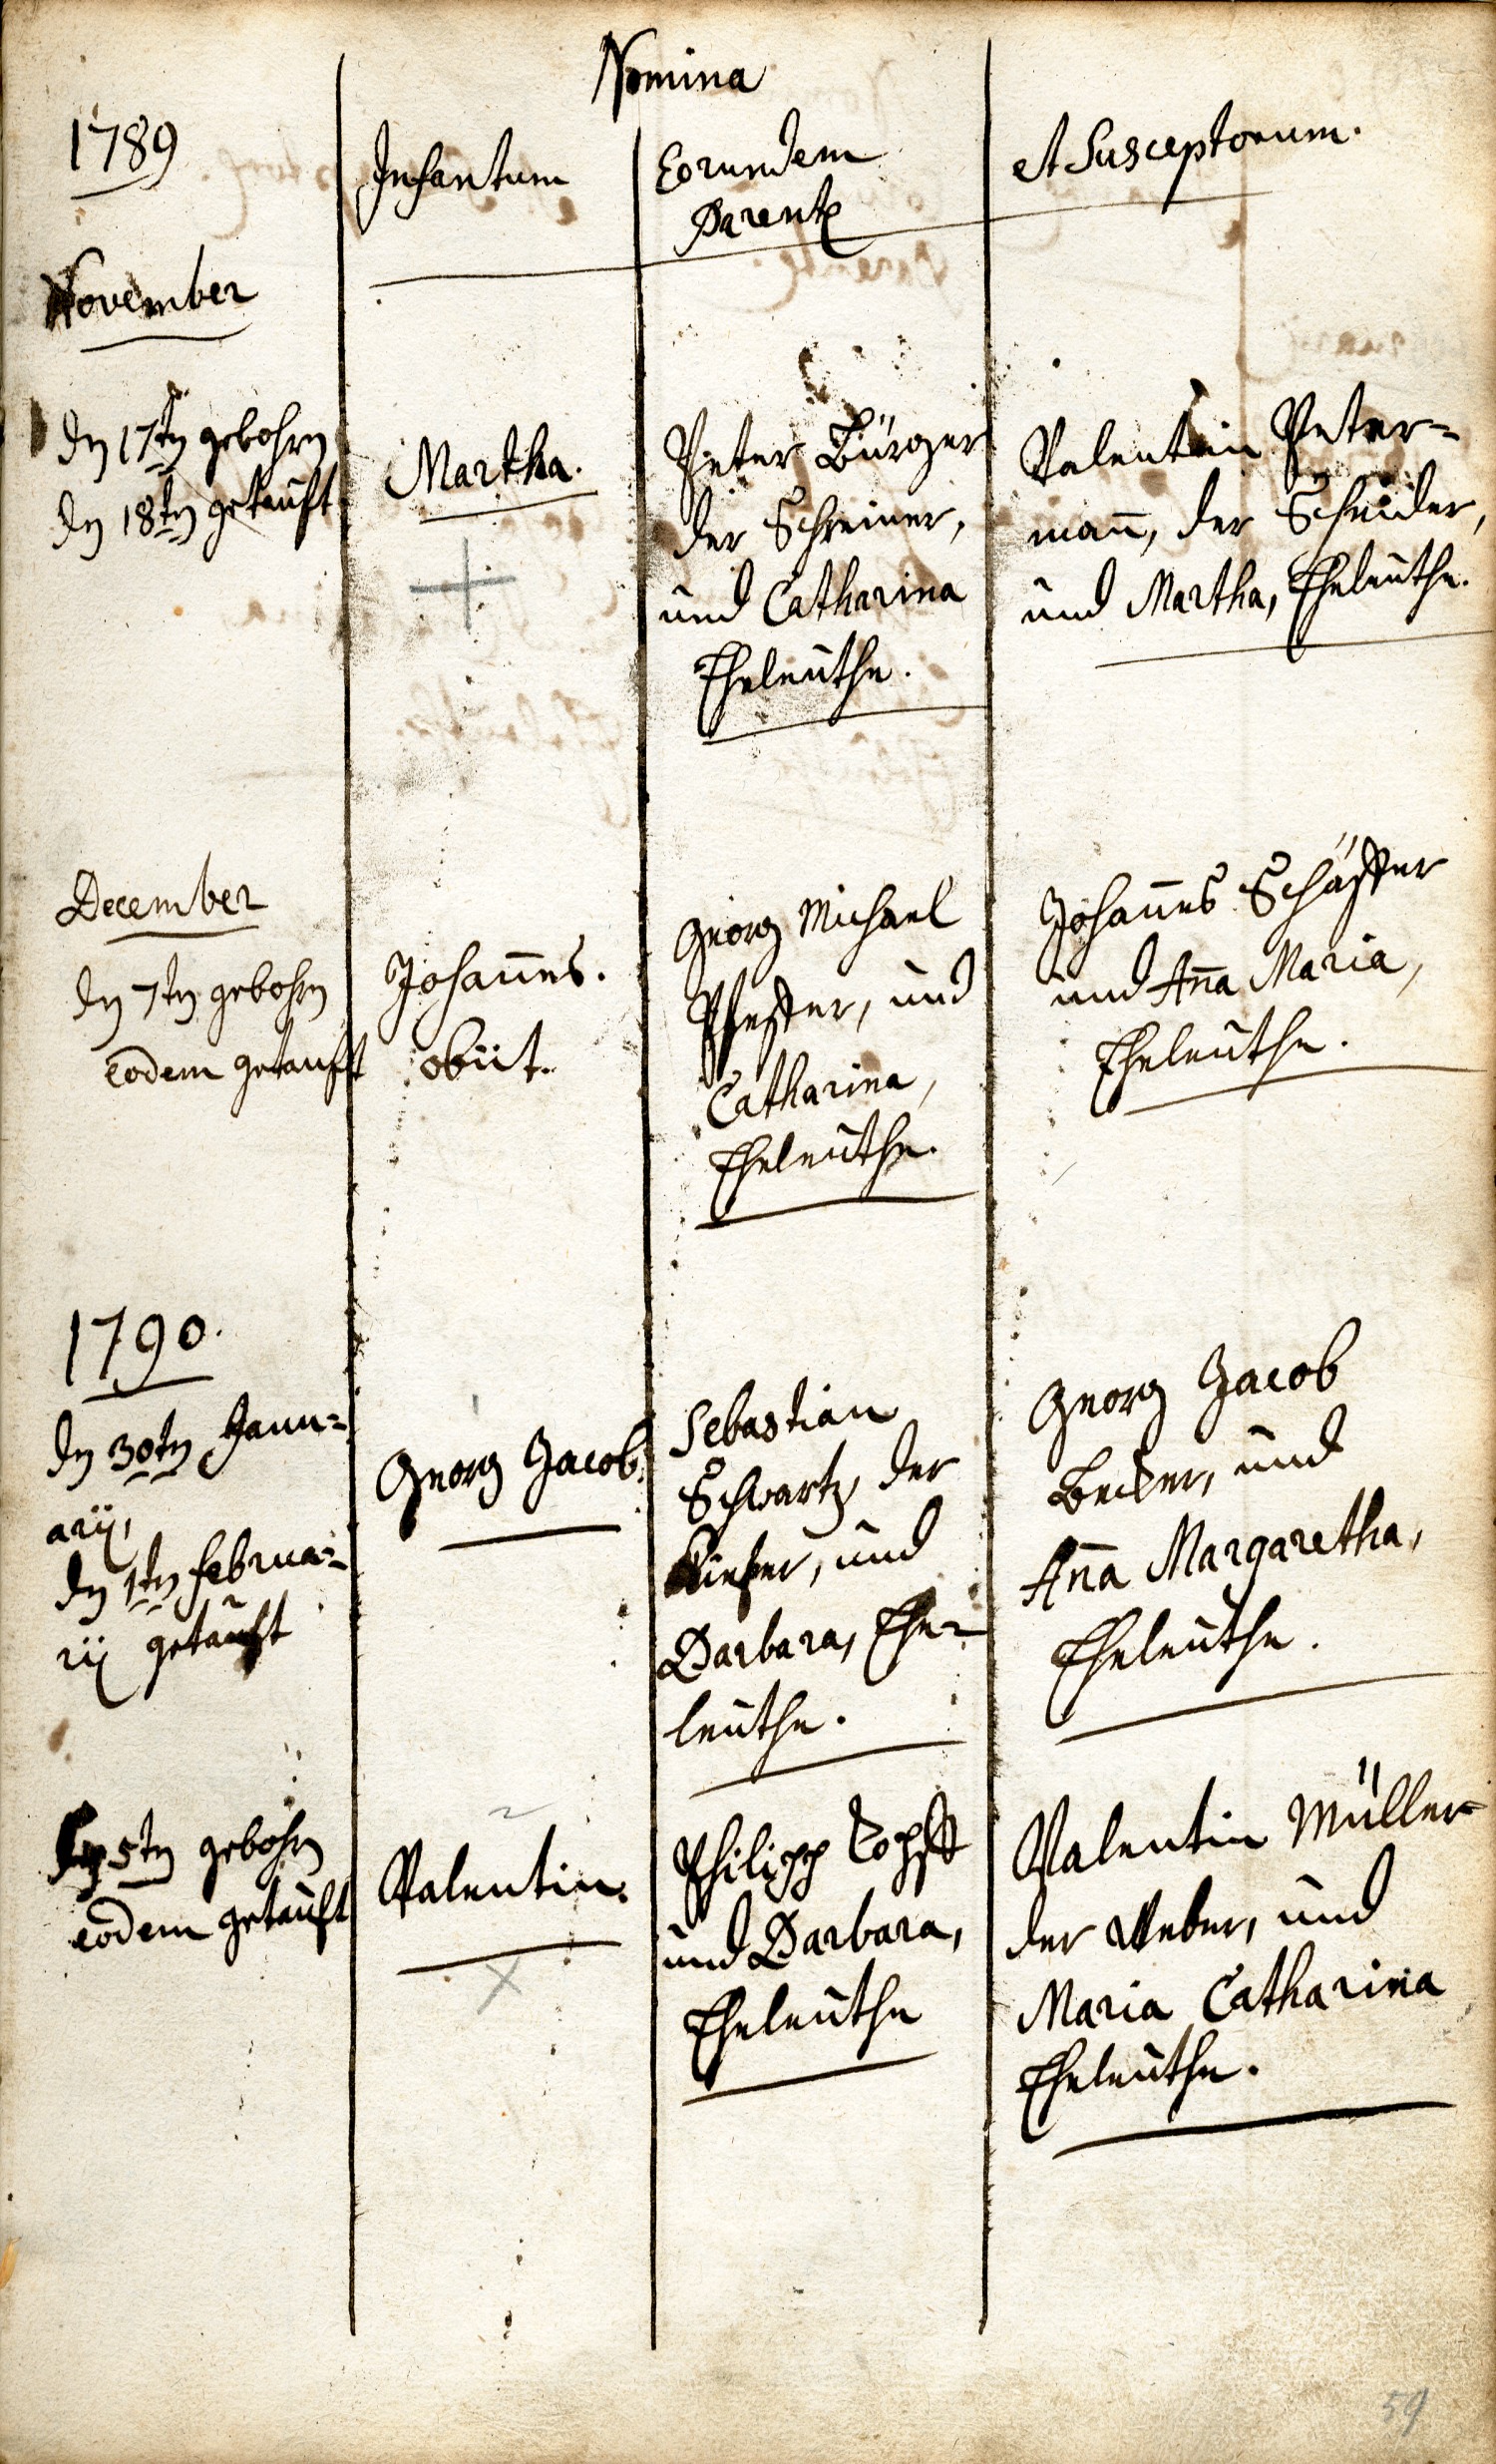 Nomina
1789
Infantum
Eorundem
Parent
et Susceptorum.
November
den 17ten gebohrn
den 18ten getauft
Martha.
Peter Bürger
der Schreiner,
und Catharina
Eheleuthe.
Valentin Peter=
mann, der Schneider,
und Martha, Eheleuthe.
December
den 7ten gebohrn
eodem getauft
Johannes.
obiit.
Georg Michael
und
Catharina,
Eheleuthe.
Johannes Schäffer
und Anna Maria,
Eheleuthe.
1790.
den 30ten Janu=
arij,
den 1ten Februa=
rij getauft
Georg Jacob.
Sebastian
Schwartz, der
Kiefer, und
Barbara, Ehe=
leuthe.
Georg Jacob
Becker, und
Anna Margaretha,
Eheleuthe.
den 5ten gebohrn
eodem getauft
Valentin.
Philipp Topff
und Barbara,
Eheleuthe
Valentin Müller
der Weber, und
Maria Catharina
Eheleuthe.
59